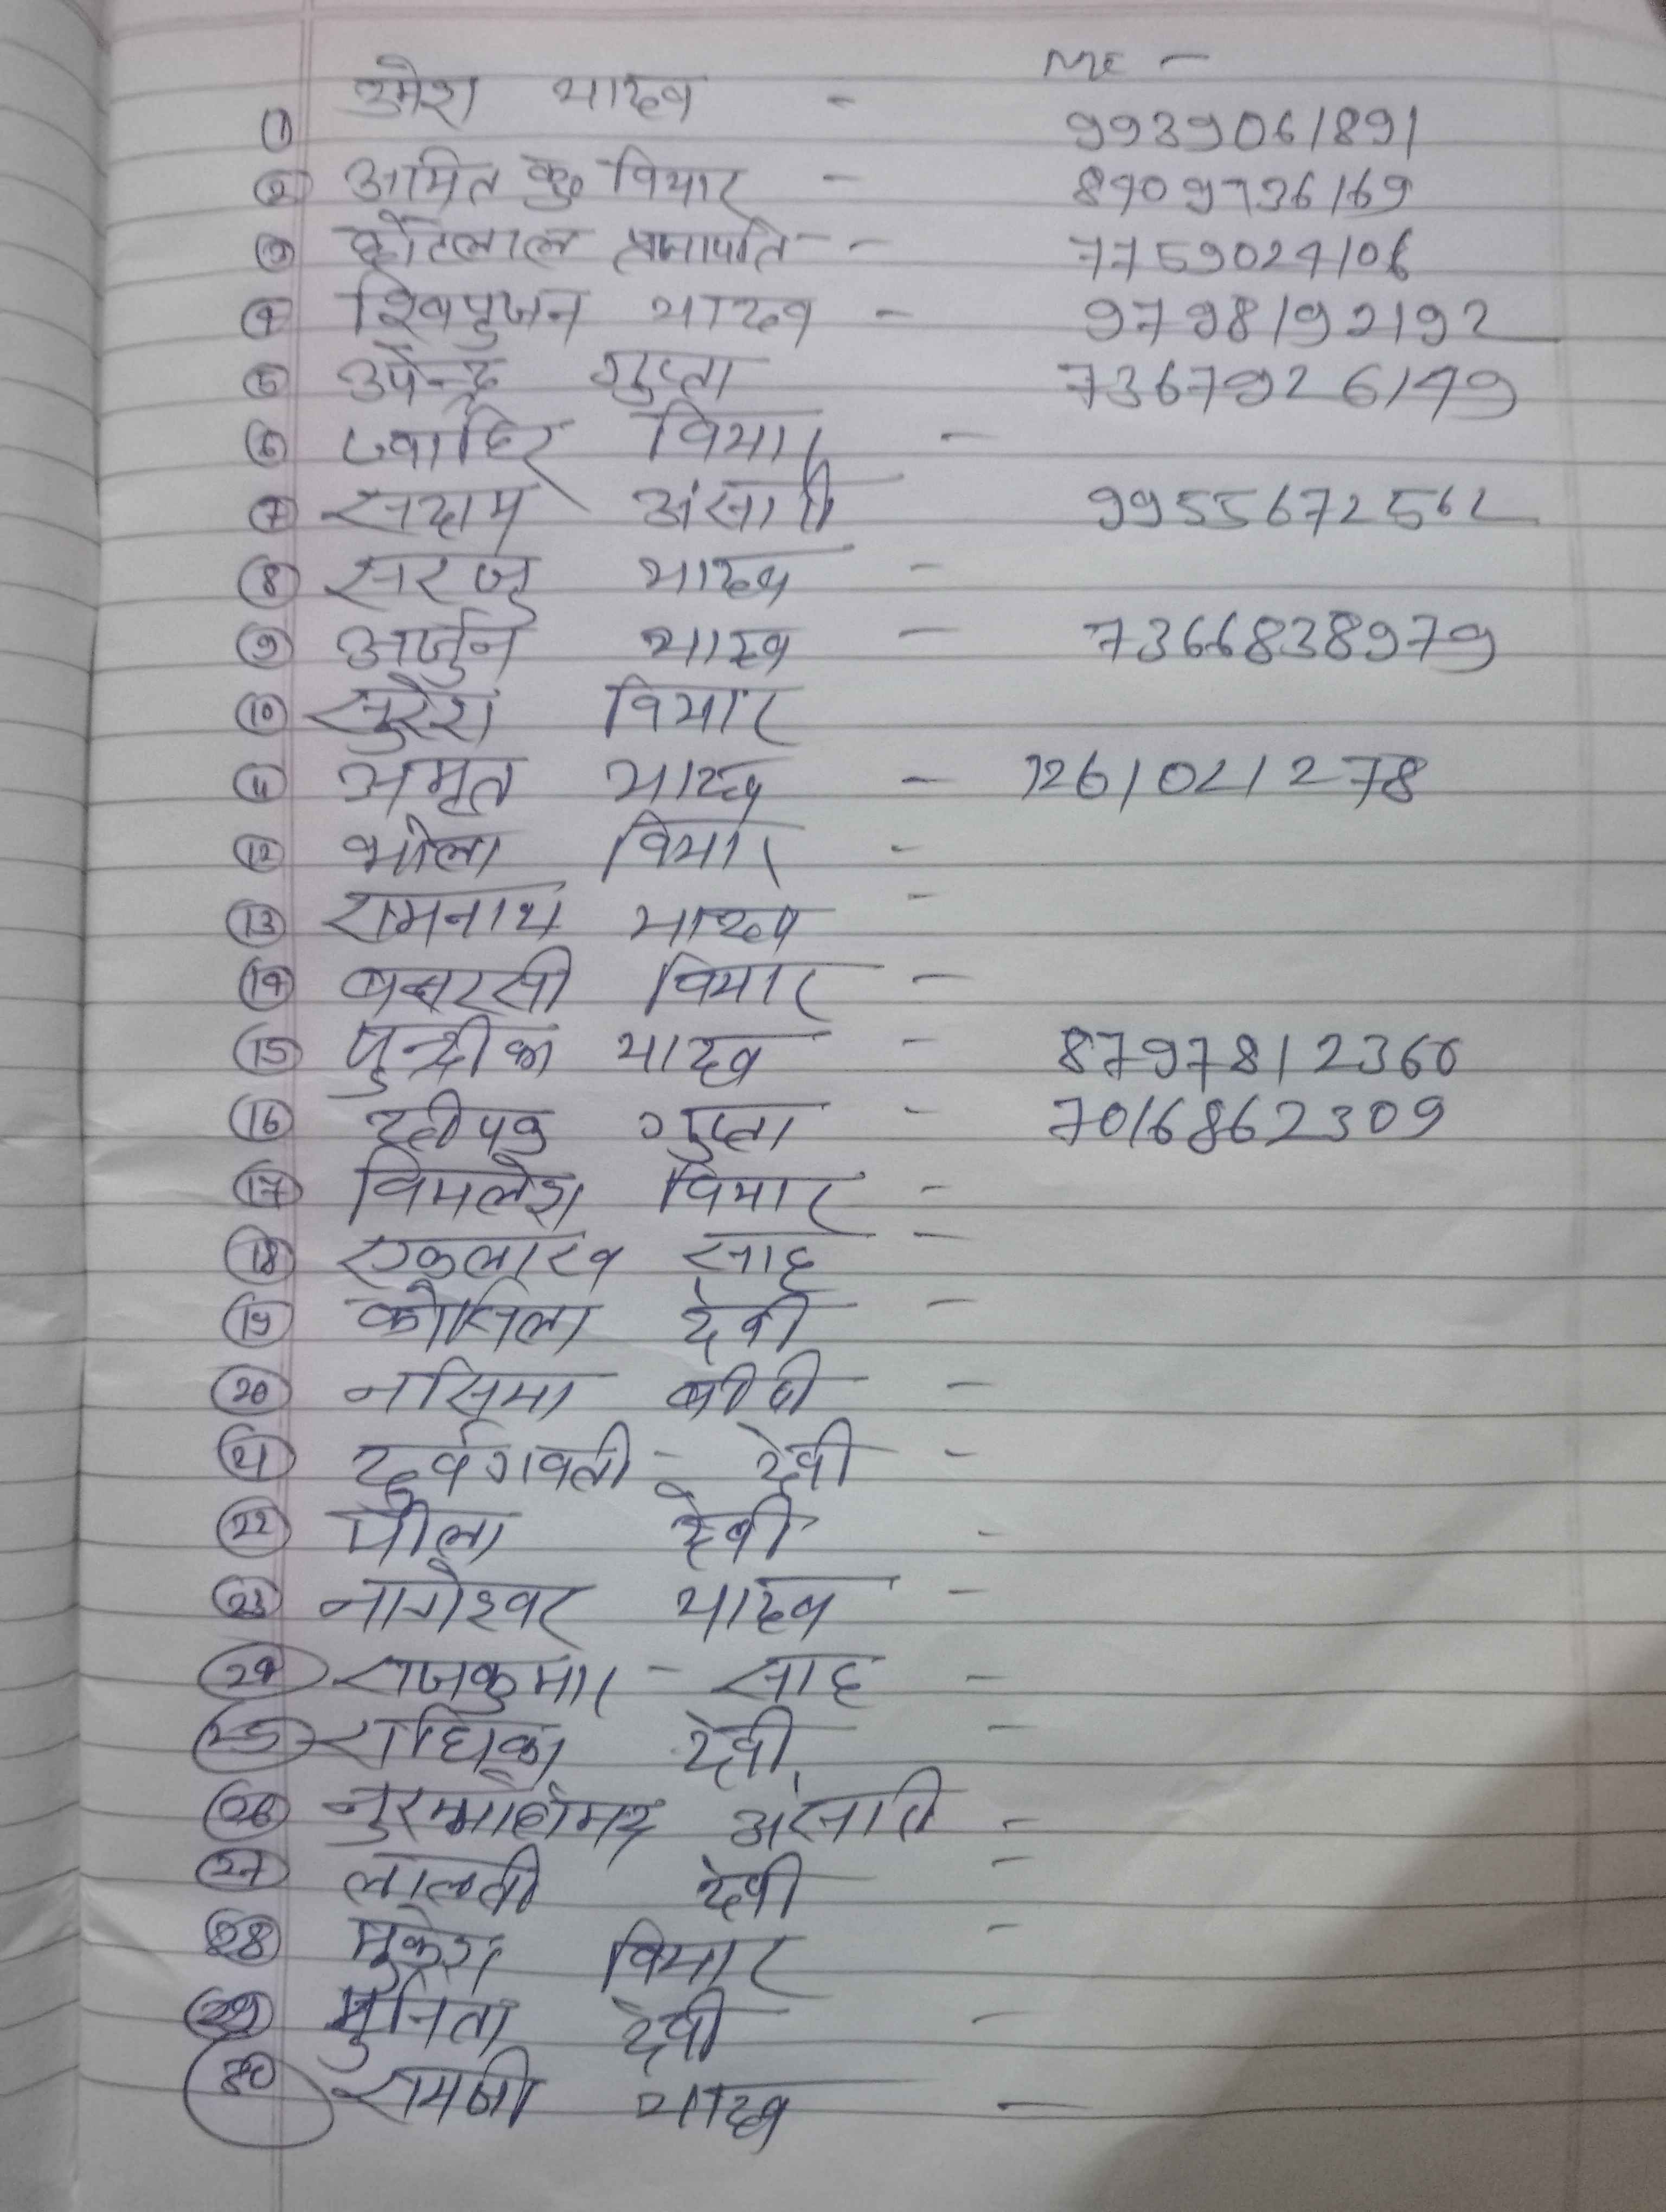 उमेश यादव - ME -
① 9939061891
② अमित कु० वियार - 8409736169
③ छोटेलाल प्रजापति - 7759024106
④ शिवपुजन यादव - 9798192192
⑤ उपेन्द्र गुप्ता 7367926149
⑥ ज्वाहिर वियार -
⑦ सदाम अंसारी 9955672562
⑧ सरजु यादव -
⑨ अर्जुन यादव - 7366838979
⑩ सुरेश वियार
11 अमृत यादव - 7261041278
⑫ भोला वियार -
⑬ रामनाथ यादव -
⑭ बनारसी वियार -
⑮ पुन्द्रीका यादव - 8797812360
⑯ दीपक गुप्ता - 7016862309
⑰ विमलेश वियार -
⑱ एकलाख साह -
⑲ कौसिला देवी -
⑳ नसिमा बीबी -
21 दुर्वगावती - देवी -
22 पीला देवी -
23 नागेश्वर यादव -
24 राजकुमार - साह -
25 राधिका देवी -
26 नुरमोहोमद अंसारी -
27 लालती देवी -
28 मुकेश वियार -
29 मुनिता देवी -
30 रामजी यादव -